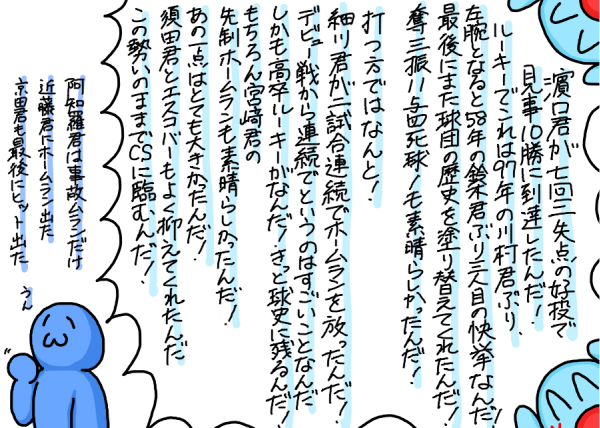 濵口君が七回三失点の好投で
見事10勝に到達したんだ！
ルーキーでこれは97年の川村君ぶり、
左腕となると58年の鈴木君ぶり三人目の快挙なんだ！
最後にまた球団の歴史を塗り替えてくれたんだ！
奪三振11与四死球1も素晴らしかったんだ！
打つ方ではなんと！
細川君が二試合連続でホームランを放ったんだ！
デビュー戦から連続でというのはすごいことなんだ
しかも高卒ルーキーがなんだ！きっと球史に残るんだ！
もちろん宮崎君の
先制ホームランも素晴らしかったんだ！
あの一点はとても大きかったんだ！
須田君とエスコバーもよく抑えてくれたんだ
この勢いのままでCSに臨むんだ！
阿知羅君は事故ムランだけ
近藤君にホームラン出た
京田君も最後にヒット出た
うん